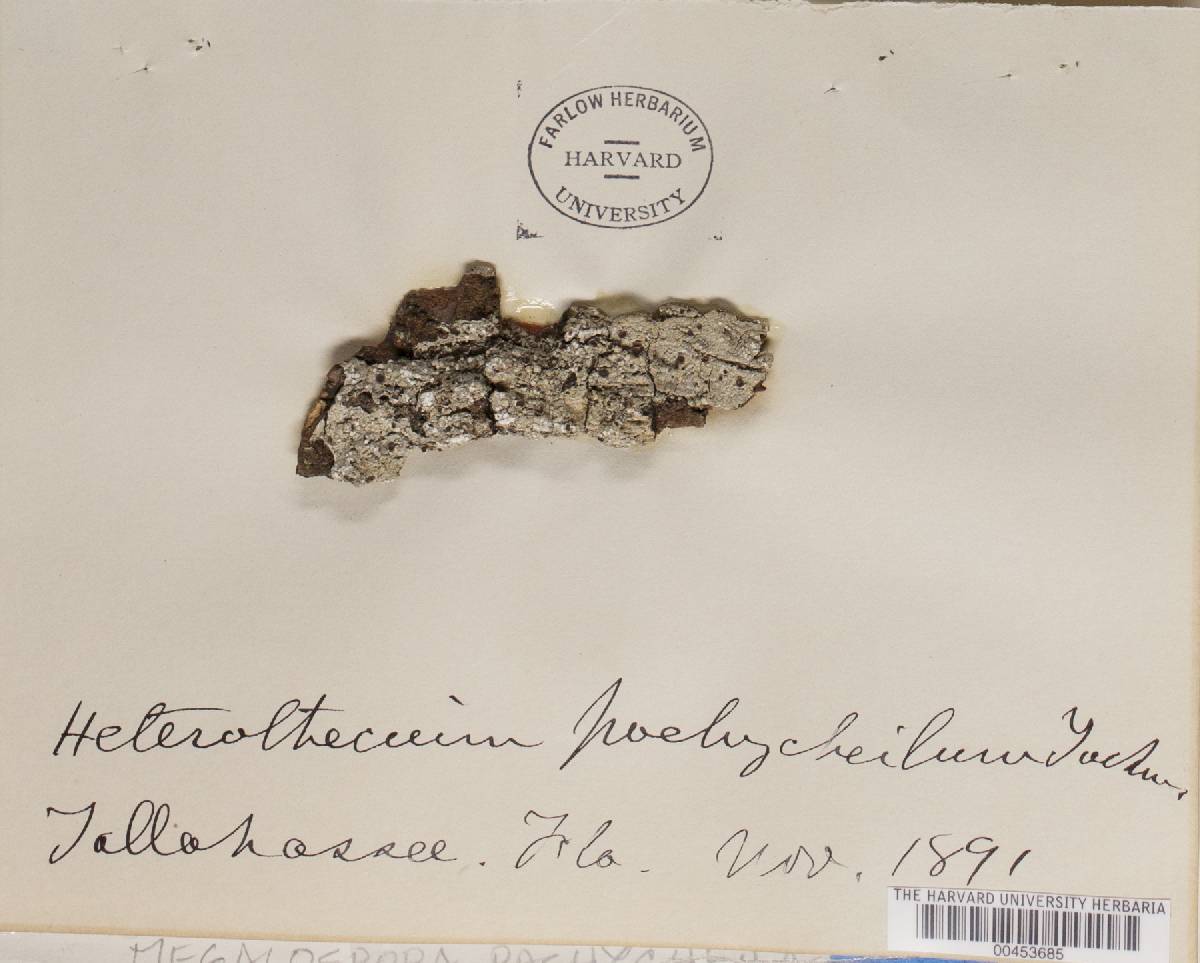 FARLOW HERBARIUM
HARVARD
UNIVERSITY
Heterothecium pachycheilum Tuckm.
Tallahassee. Fla. Nov. 1891
THE HARVARD UNIVERSITY HERBARIA
00453685
MEGALOSPORA PACHYCHEILA